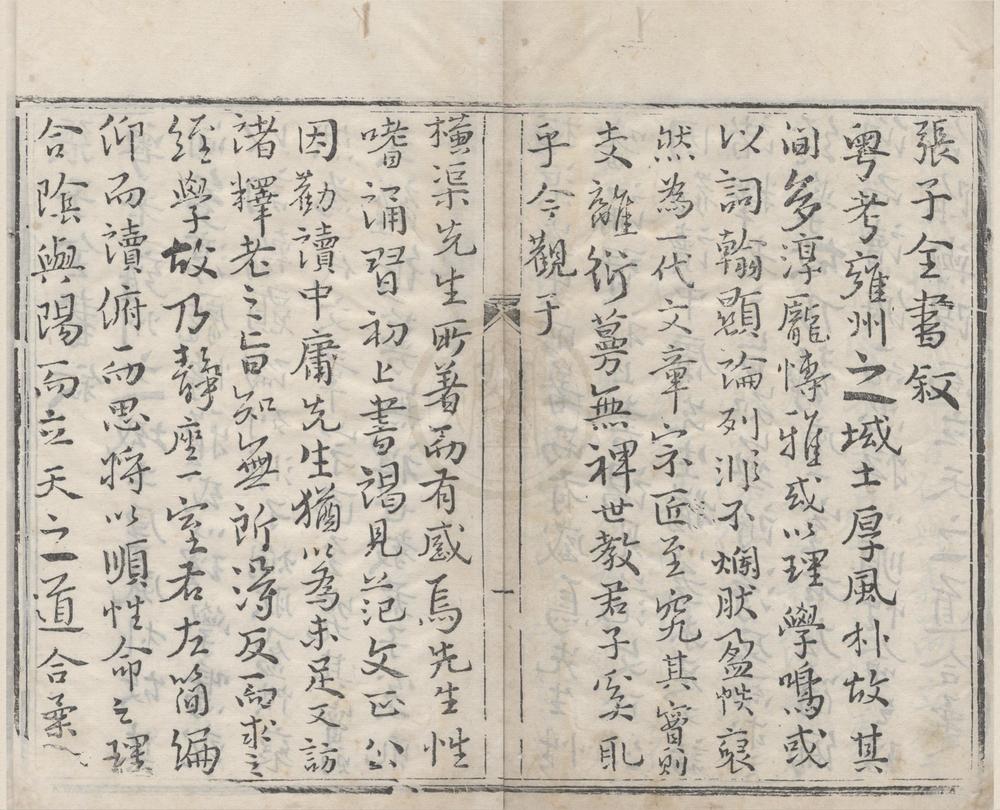 張子全書叙
粤考雍州之域土厚風朴故其
間多淳龐慱雅或以理學鳴或
以詞翰顯論列非不爛肰盈帙裒
然為一代文章宗匠至究其實則
支離衍蔓無裨世教君子奚取
乎今觀于
橫渠先生所著而有感焉先生性
嗜誦習初上書謁見范文正公
因勸讀中庸先生猶以為未足又訪
諸釋老之旨知無所得反而求之
經學故乃靜座一室右左簡編
仰而讀俯而思將以順性命之理
合陰與陽而立天之道合柔
一